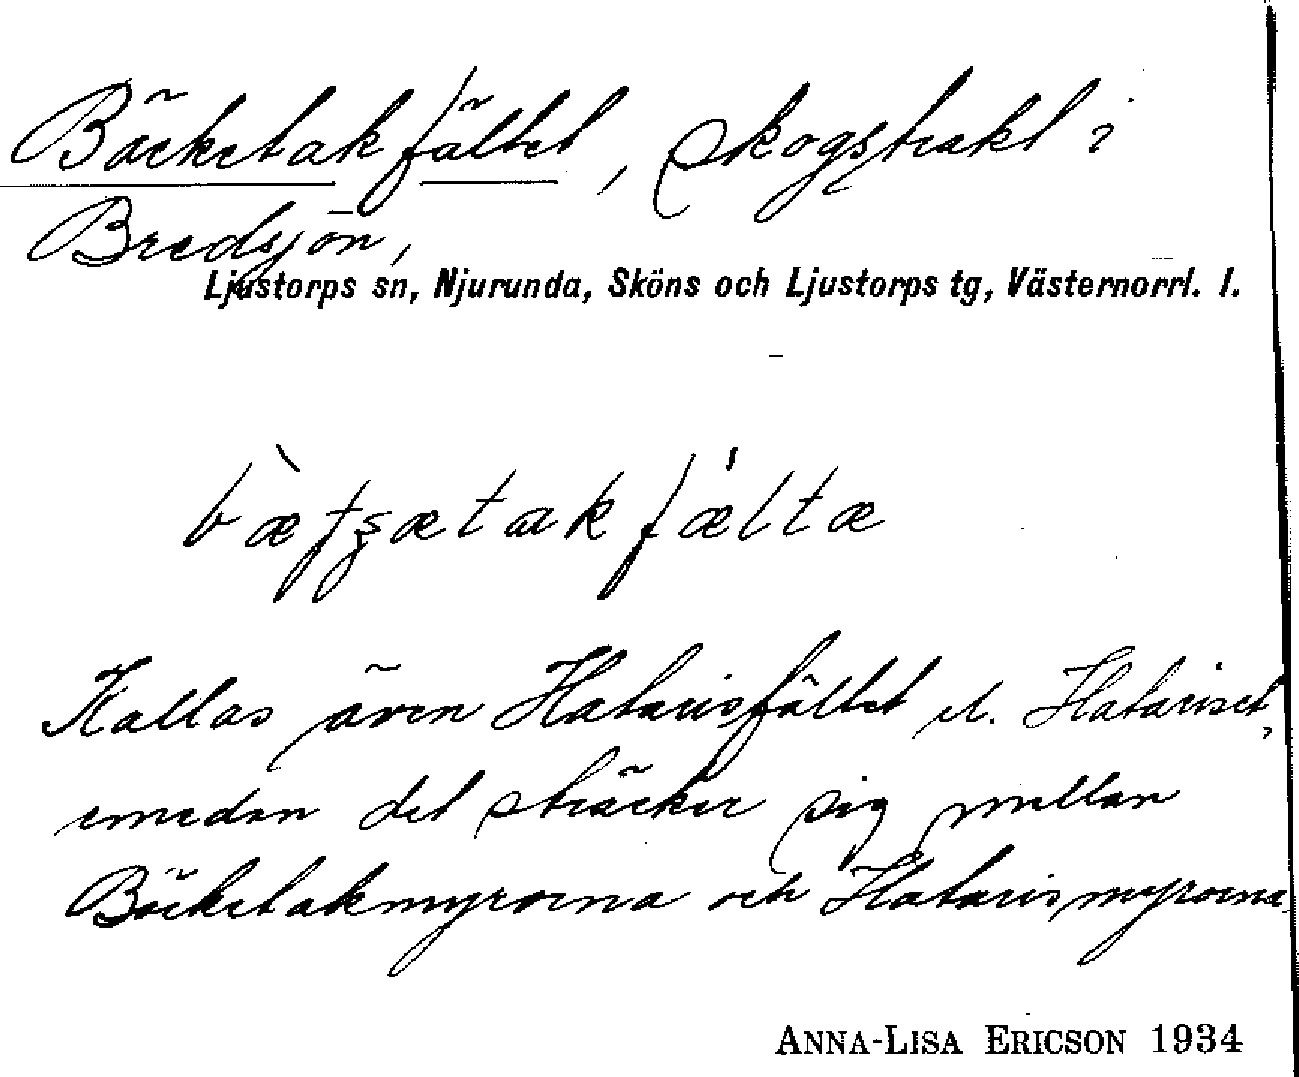 Bäcketakfältet, skogstrakt i
Bredsjön,
Ljustorps sn, Njurunda, Sköns och Ljustorps tg, Västernorrl. l.
Kallas även Hatarisfältet el. Hatariset,
emedan det sträcker sig mellan
Bäcketakmyrorna och Hatarismyrorna.
ANNA-LISA ERICSON 1934